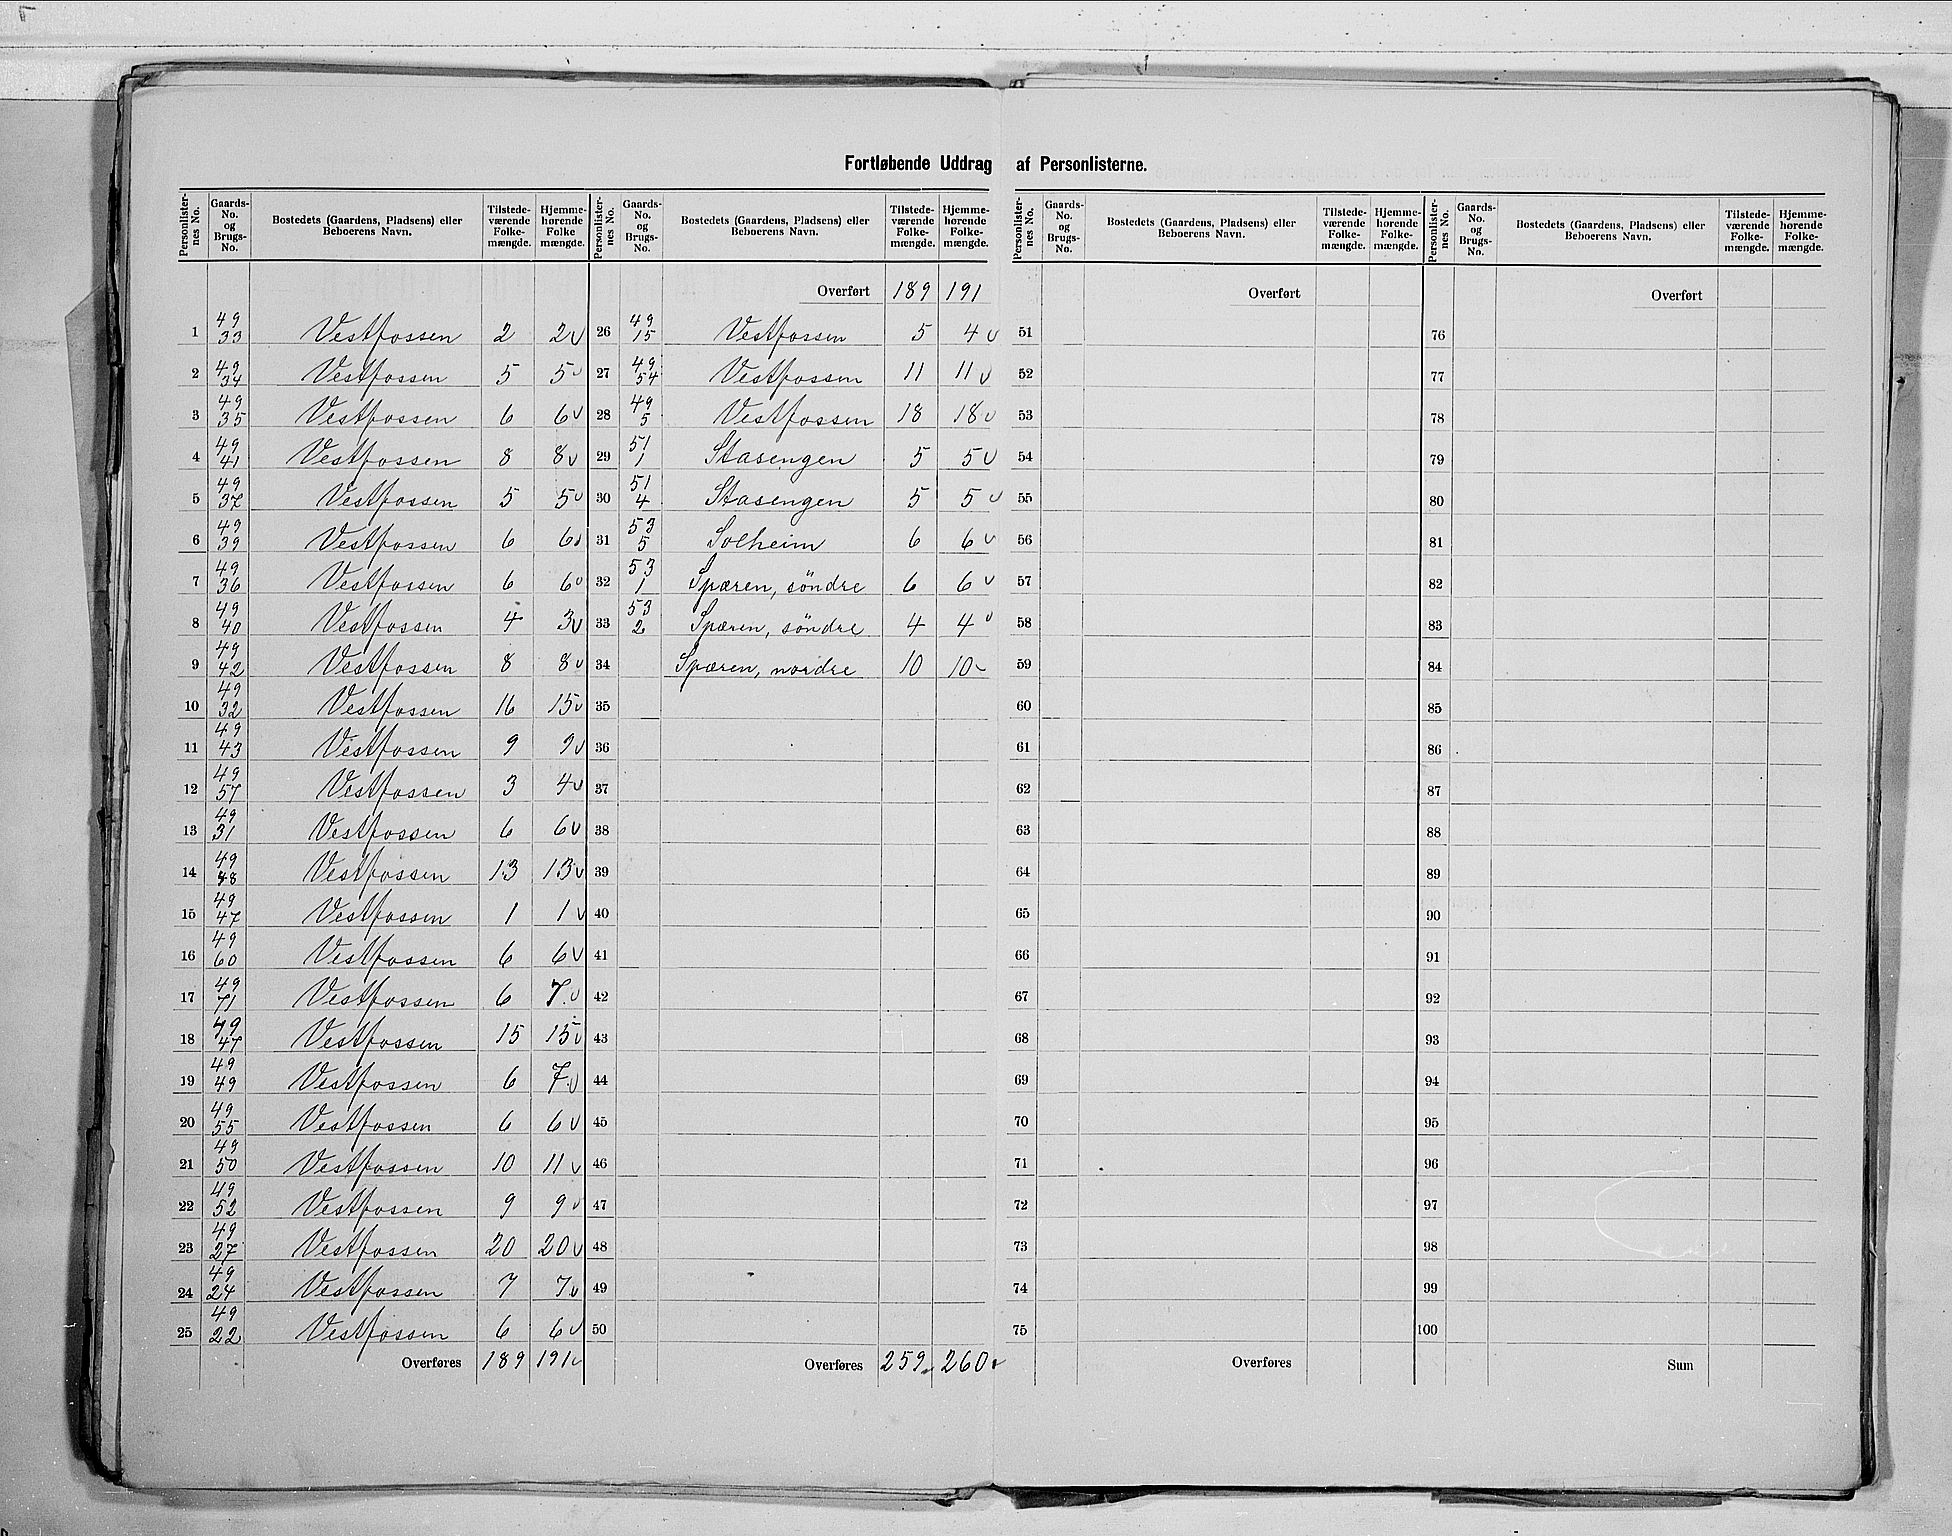 Fortløbende Uddrag af Personlisterne.
Personlisternes No. | Gaards-No. og Brugs-No. | Bostedets (Gaardens, Pladsens) eller Beboerens Navn. | Tilstedeværende Folkemængde. | Hjemmehørende Folkemængde.
1 49/33 Vestfossen 2 2
2 49/34 Vestfossen 5 5
3 49/35 Vestfossen 6 6
4 49/41 Vestfossen 8 8
5 49/37 Vestfossen 5 5
6 49/39 Vestfossen 6 6
7 49/36 Vestfossen 6 6
8 49/40 Vestfossen 4 3
9 49/42 Vestfossen 8 8
10 49/32 Vestfossen 16 15
11 49/43 Vestfossen 9 9
12 49/57 Vestfossen 3 4
13 49/31 Vestfossen 6 6
14 49/48 Vestfossen 13 13
15 49/47 Vestfossen 1 1
16 49/60 Vestfossen 6 6
17 49/71 Vestfossen 6 7
18 49/47 Vestfossen 15 15
19 49/49 Vestfossen 6 7
20 49/55 Vestfossen 6 6
21 49/50 Vestfossen 10 11
22 49/52 Vestfossen 9 9
23 49/27 Vestfossen 20 20
24 49/24 Vestfossen 7 7
25 49/22 Vestfossen 6 6
Overføres 189 191
Personlisternes No. | Gaards-No. og Brugs-No. | Bostedets (Gaardens, Pladsens) eller Beboerens Navn. | Tilstedeværende Folkemængde. | Hjemmehørende Folkemængde.
Overført 189 191
26 49/15 Vestfossen 5 4
27 49/54 Vestfossen 11 11
28 49/5 Vestfossen 18 18
29 51/1 Stasengen 5 5
30 51/4 Stasengen 5 5
31 53/5 Solheim 6 6
32 53/1 Spæren, söndre 6 6
33 53/2 Spæren, söndre 4 4
34 Spæren, nordre 10 10
35
36
37
38
39
40
41
42
43
44
45
46
47
48
49
50
Overføres 259 260
Personlisternes No. | Gaards-No. og Brugs-No. | Bostedets (Gaardens, Pladsens) eller Beboerens Navn. | Tilstedeværende Folkemængde. | Hjemmehørende Folkemængde.
Overført
51
52
53
54
55
56
57
58
59
60
61
62
63
64
65
66
67
68
69
70
71
72
73
74
75
Overføres
Personlisternes No. | Gaards-No. og Brugs-No. | Bostedets (Gaardens, Pladsens) eller Beboerens Navn. | Tilstedeværende Folkemængde. | Hjemmehørende Folkemængde.
Overført
76
77
78
79
80
81
82
83
84
85
86
87
88
89
90
91
92
93
94
95
96
97
98
99
100
Sum